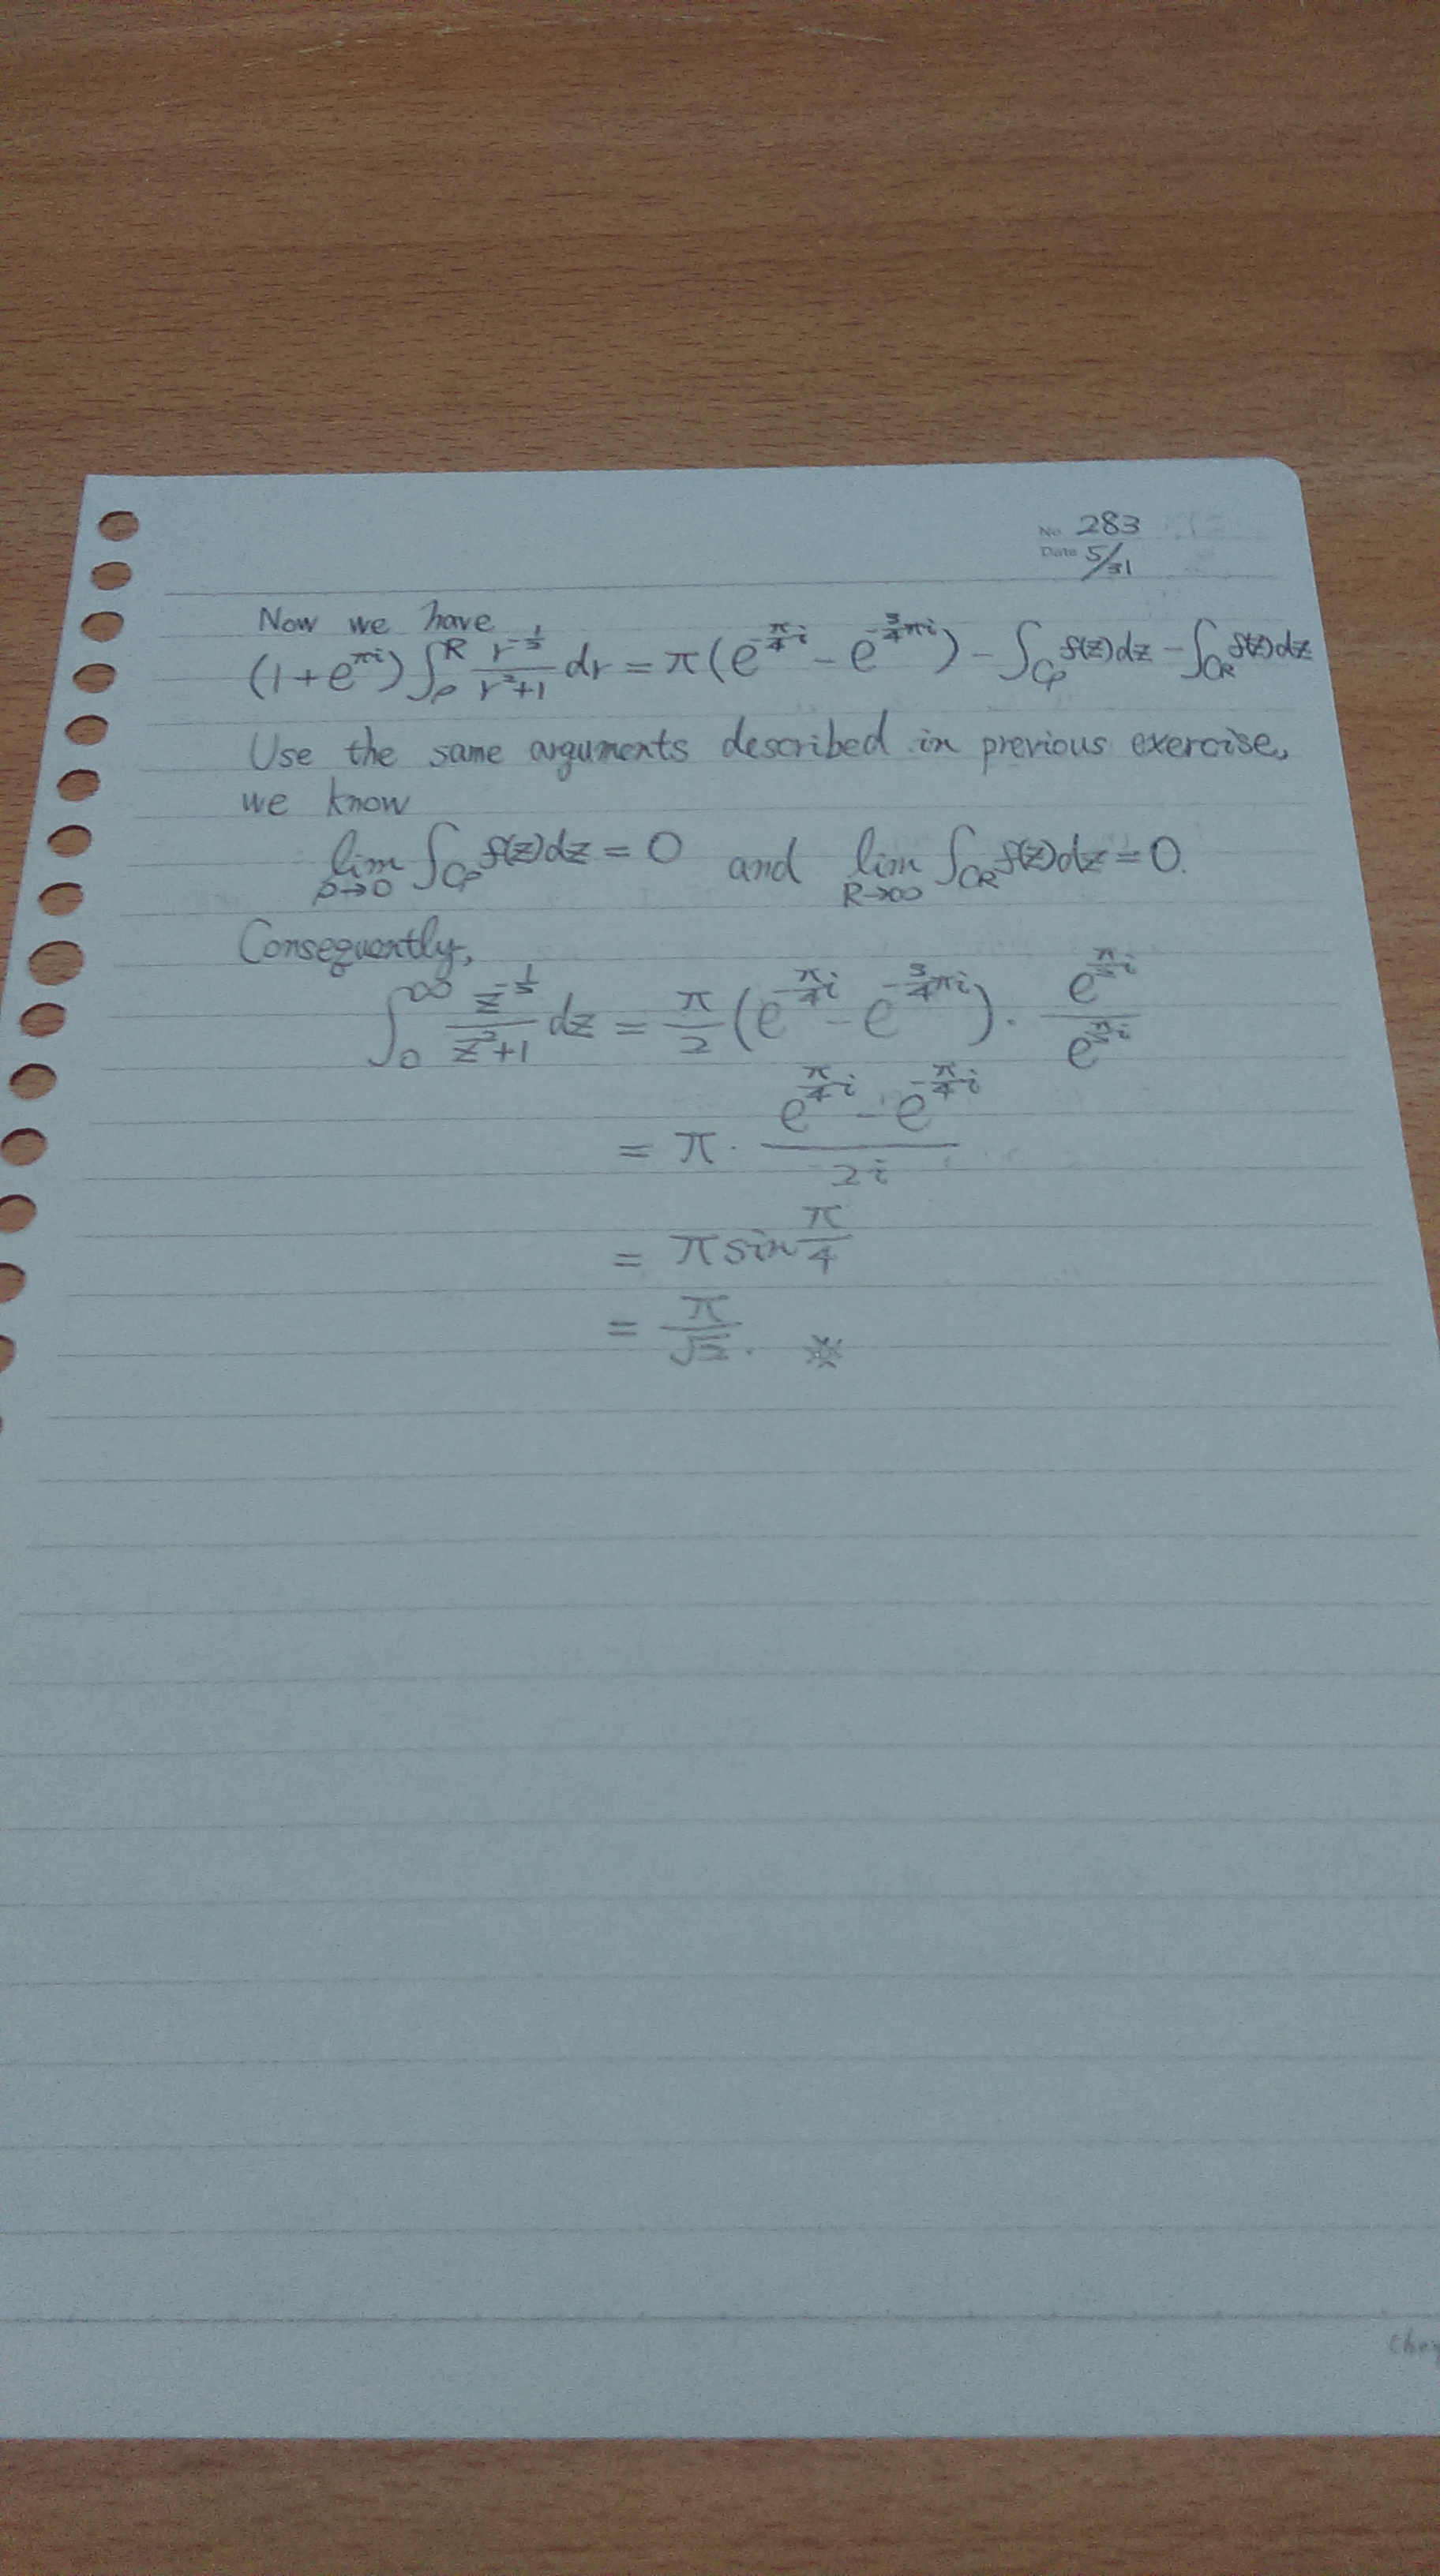 No. 283
Date 5/31
Now we have
(1+e^{πi}) ∫_ρ^R \frac{r^{-\frac{1}{2}}}{r^2+1} dr = π(e^{-\frac{π}{4}i} - e^{-\frac{3}{4}πi}) - ∫_{Cρ} f(z)dz - ∫_{CR} f(z)dz
Use the same arguments described in previous exercise,
we know
lim_{ρ→0} ∫_{Cρ} f(z)dz = 0 and lim_{R→∞} ∫_{CR} f(z)dz = 0.
Consequently,
∫_0^∞ \frac{z^{-\frac{1}{2}}}{z^2+1} dz = \frac{π}{2} (e^{-\frac{π}{4}i} - e^{-\frac{3}{4}πi}) · \frac{e^{\frac{π}{2}i}}{e^{\frac{π}{2}i}}
= π · \frac{e^{\frac{π}{4}i} - e^{-\frac{π}{4}i}}{2i}
= π sin \frac{π}{4}
= \frac{π}{√2}. ※